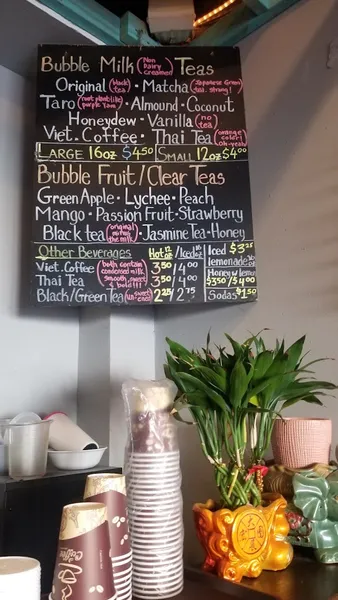 Bubble Milk (Non Dairy creamer) Teas
Original (black tea) · Matcha (Japanese Green tea: strong!)
Taro (root plant like purple yam) · Almound · Coconut
Honeydew · Vanilla (no tea)
Viet. Coffee · Thai Tea (orange color! oh-yeah)
LARGE 16oz $4.50 SMALL 12oz $4.00
Bubble Fruit/Clear Teas
Green Apple · Lychee · Peach
Mango · Passion Fruit · Strawberry
Black tea (original minus the milk) · Jasmine Tea · Honey
Other Beverages Hot 12oz / Iced 16oz
Viet. Coffee 3.50 / 4.00
Thai Tea (both contain condensed milk smooth, sweet & bold!!!) 3.50 / 4.00
Black/Green Tea (un-sweet ened) 2.25 / 2.75
Iced $3.25
lemonade
Honey w/ lemon
$3.50/$4.00
Sodas $1.50
Coffee